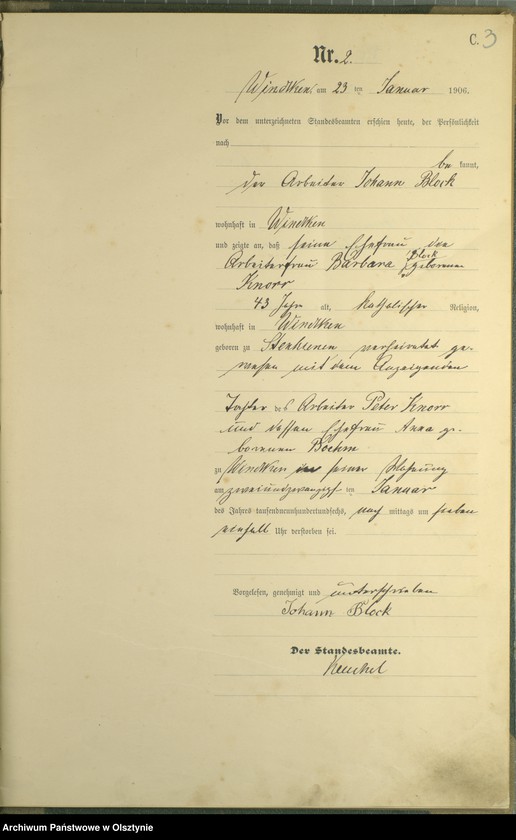 C. 3
Nr. 2.
Windtken, am 23 ten Januar 1906.
Vor dem unterzeichneten Standesbeamten erschien heute, der Persönlichkeit
nach
be kannt,
der Arbeiter Johann Block
wohnhaft in Windtken
und zeigte an, daß seine Ehefrau, die
Arbeiterfrau Barbara Block geborene
Knorr
43 Jahr alt, katholischer Religion,
wohnhaft in Windtken
geboren zu verheiratet ge-
wesen mit dem Anzeigenden
Tochter des Arbeiter Peter Knorr
und dessen Ehefrau Anna ge-
borenen Boehm
zu Windtken in seiner Wohnung
am zweiundzwanzigsten Januar
des Jahrs tausendneunhundertsechs, nach mittags um sieben
einhalb Uhr verstorben sei.
Vorgelesen, genehmigt und unterschrieben
Johann Block
Der Standesbeamte.
Archiwum Państwowe w Olsztynie